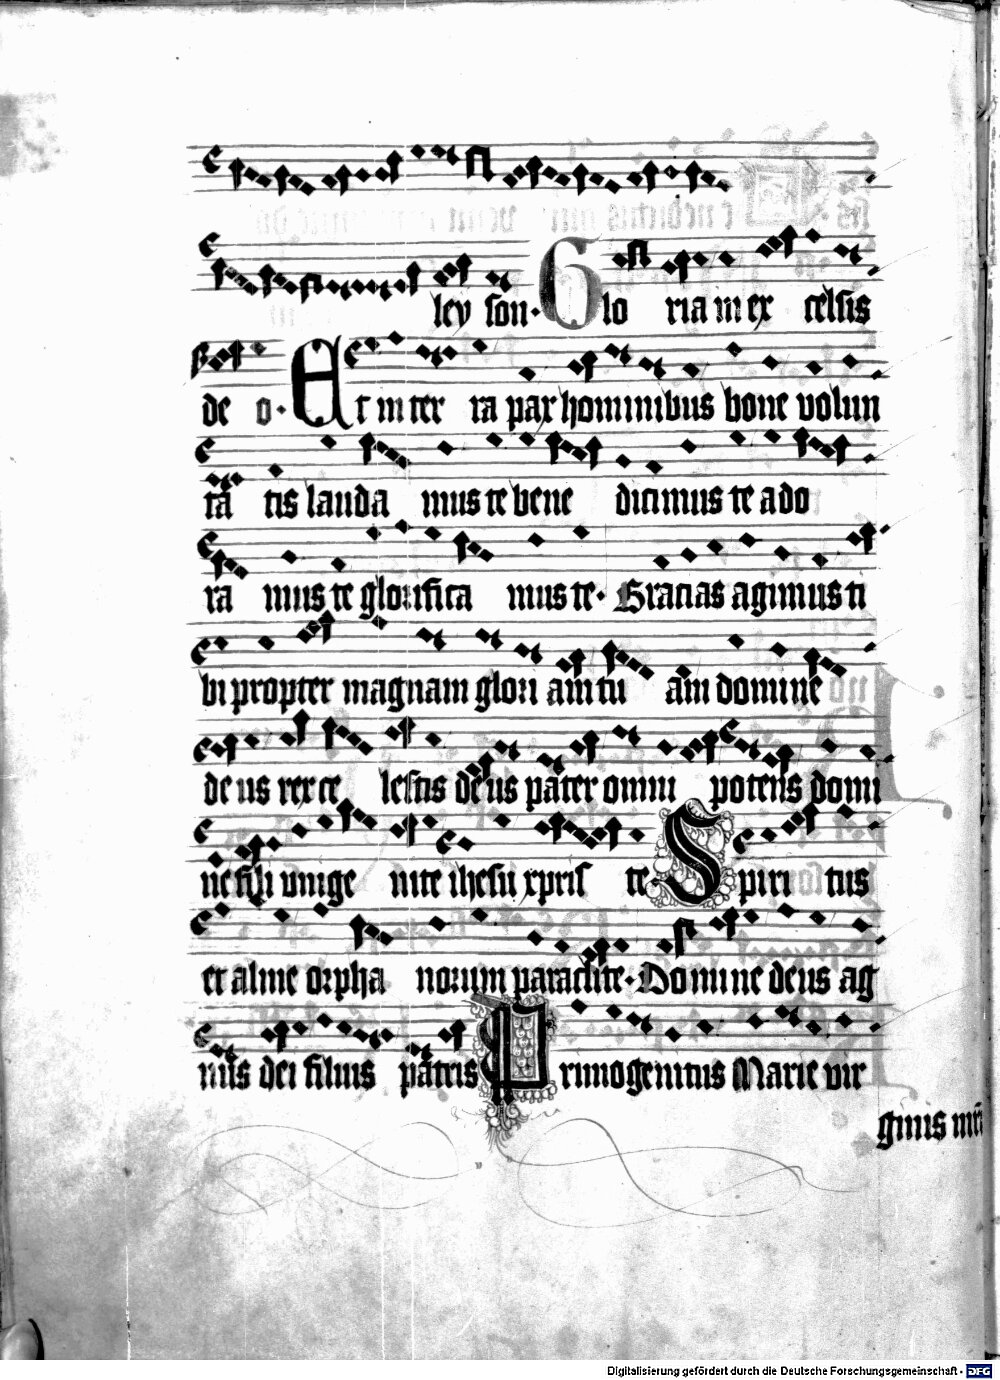 ley son· Glo ria in ex celsis
de o· Et in ter ra pax hominibus bone volun
ta tis lauda mus te bene dicimus te ado
ra mus te glorifica mus te· Gracias agimus ti
bi propter magnam glori am tu am domine
deus rex ce lestis deus pater omni potens domi
ne fili unige nite ihesu xpriste Spiri tus
et alme orpha norum paraclite· Domine deus ag
nus dei filius patris Primogenitus Marie vir
ginis
Digitalisierung gefördert durch die Deutsche Forschungsgemeinschaft - DFG